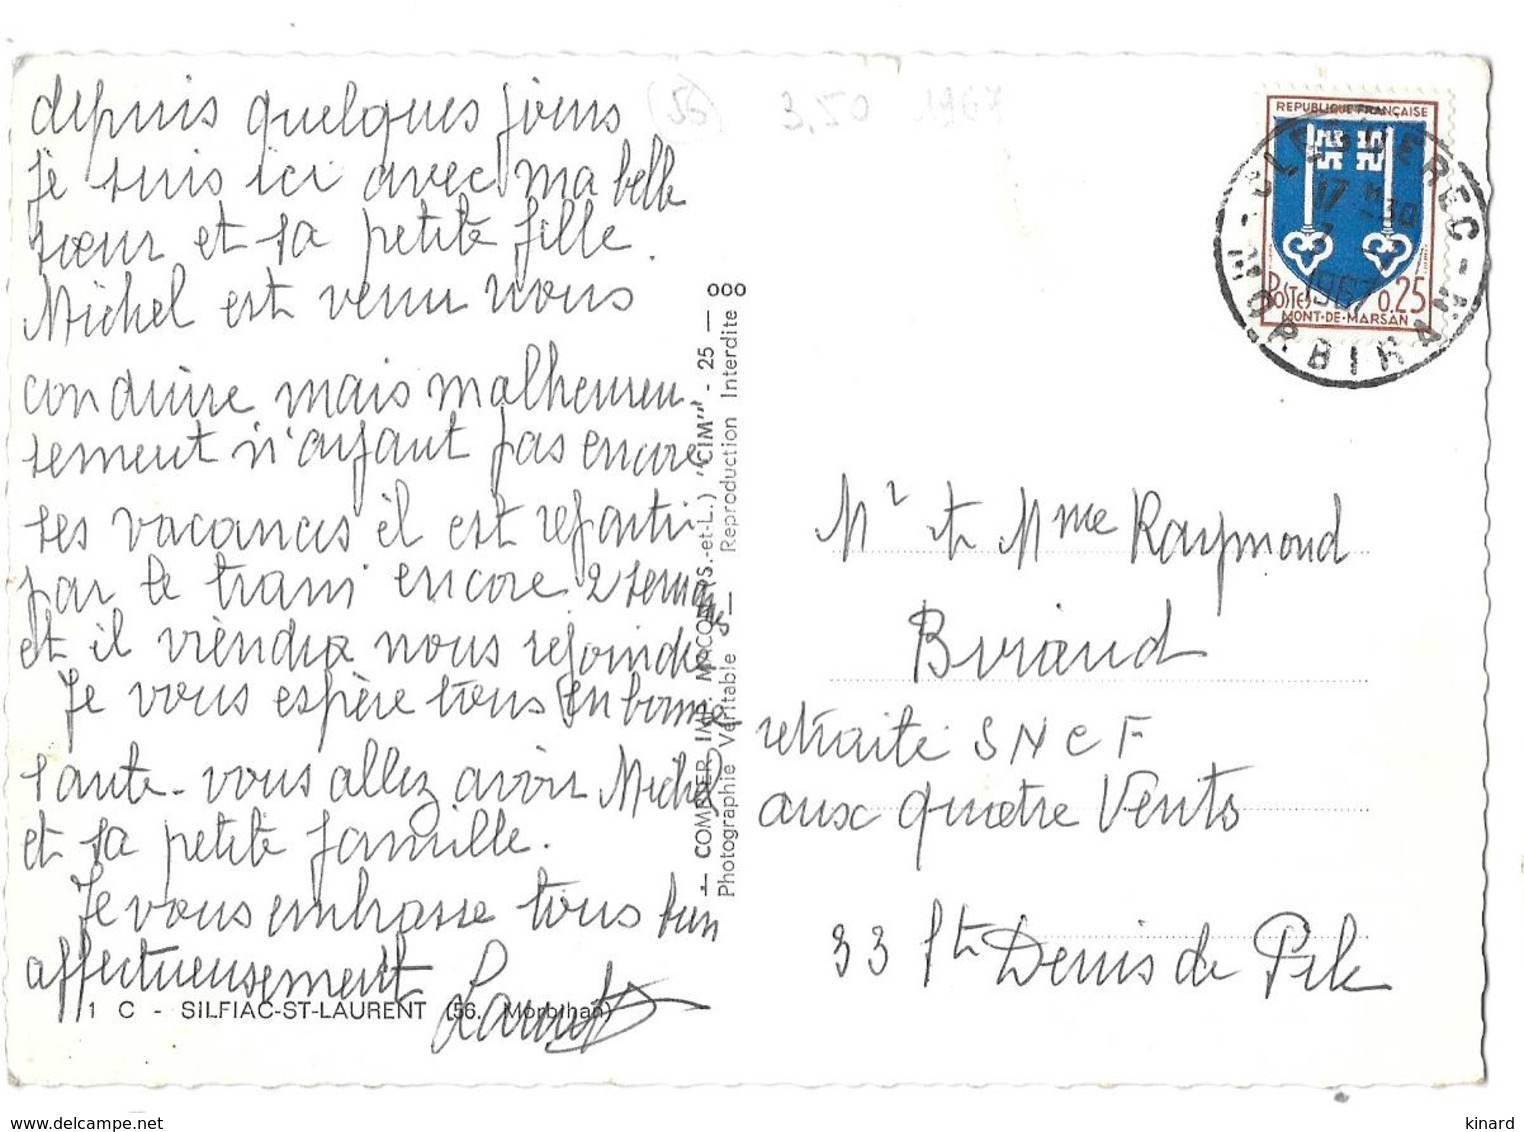 depuis quelques jours
je suis ici avec ma belle
sœur et sa petite fille.
Michel est venu nous
conduire mais malheureu-
sement n'ayant pas encore
ses vacances il est reparti
par le train encore 2 semaines
et il viendra nous rejoindre
Je vous espère tous en bonne
santé - vous allez avoir Michel
et sa petite famille.
Je vous embrasse tous bien
affectueusement
1 C - SILFIAC-ST-LAURENT (56. Morbihan)
COMBIER IMP. MACON (S.-et-L.) "CIM" - 25 —
Photographie Véritable — Reproduction Interdite
(56) 3,50 1967
REPUBLIQUE FRANÇAISE
POSTES 0.25
MONT-DE-MARSAN
CLEGUEREC
17 H 30
1967
MORBIHAN
Mr et Mme Raymond
retraité SNCF
aux quatre Vents
33 St Denis de Pile
delcampe.net
kinard